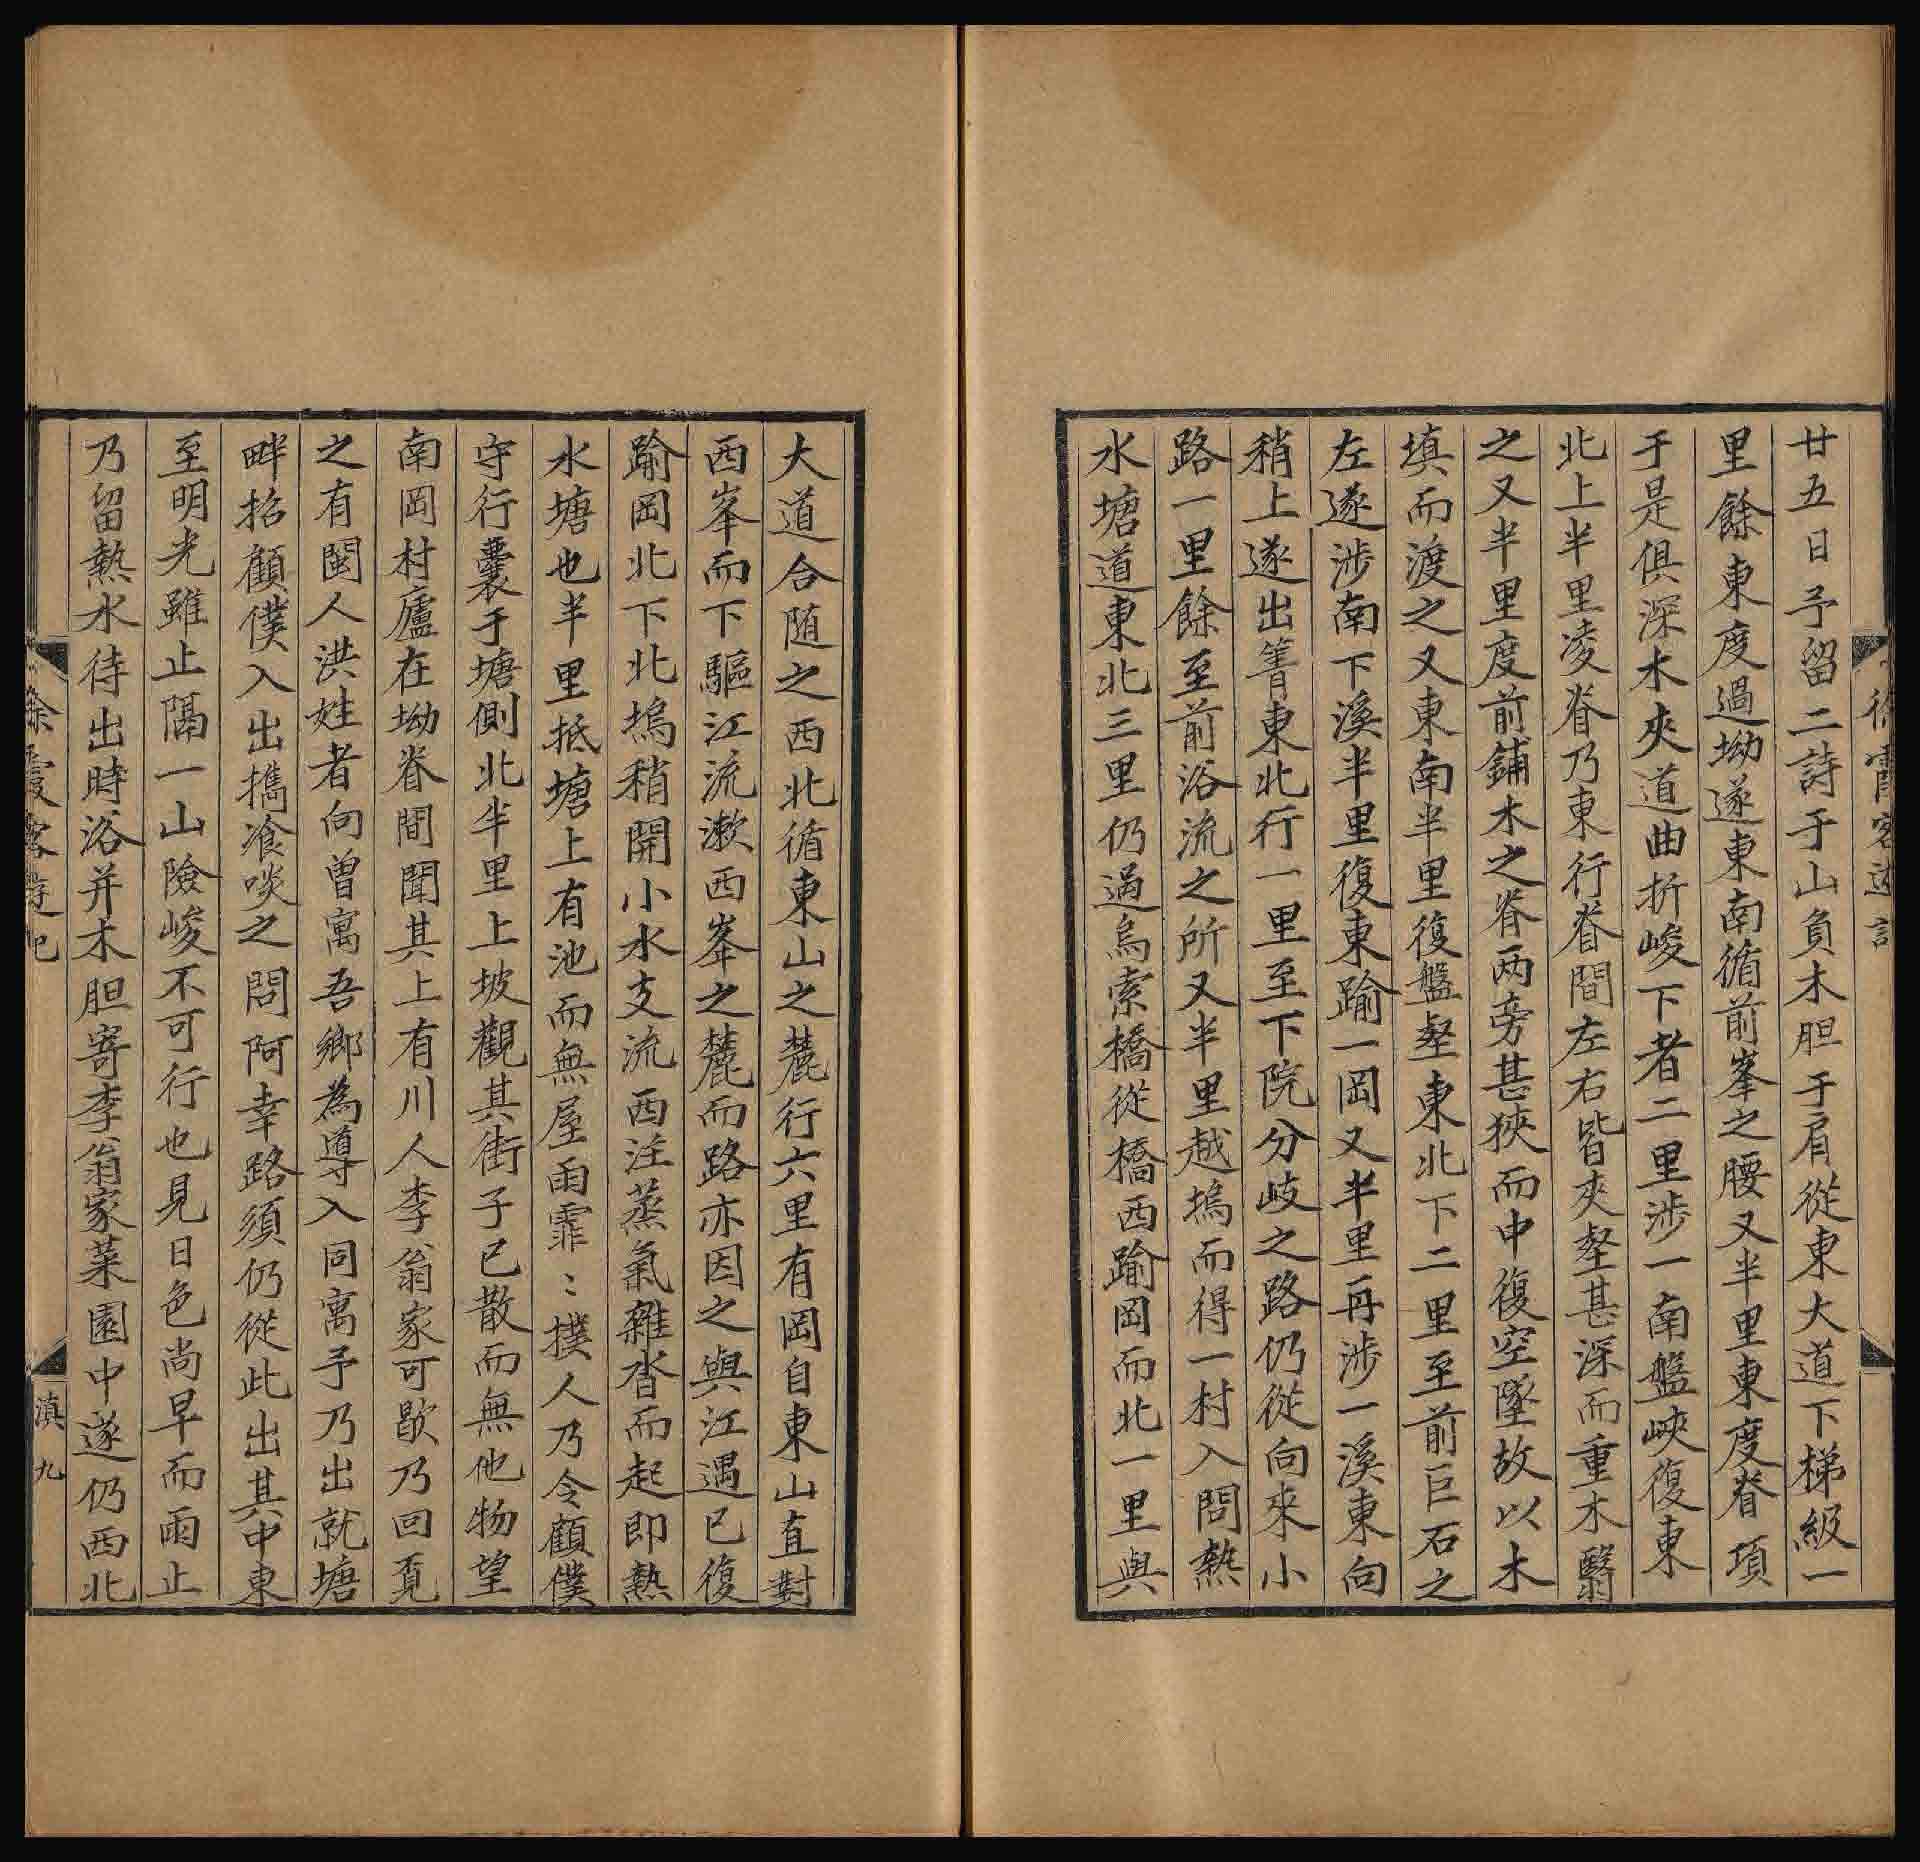 徐霞客遊記
廿五日予留二詩于山負木胆于肩從東大道下梯級一
里餘東度過坳遂東南循前峯之腰又半里東度脊項
于是俱深木夾道曲折峻下者二里涉一南盤峽復東
北上半里凌脊乃東行脊間左右皆夾壑甚深而重木翳
之又半里度前鋪木之脊两旁甚狹而中復空墜故以木
填而渡之又東南半里復盤壑東北下二里至前巨石之
左遂涉南下溪半里復東踰一岡又半里再涉一溪東向
稍上遂出箐東北行一里至下院分岐之路仍從向來小
路一里餘至前浴流之所又半里越塢而得一村入問熱
水塘道東北三里仍過烏索橋從橋西踰岡而北一里與
大道合随之西北循東山之麓行六里有岡自東山直對
西峯而下驅江流漱西峯之麓而路亦因之與江遇已復
踰岡北下北塢稍開小水支流西注蒸氣雜沓而起即熱
水塘也半里抵塘上有池而無屋雨霏〻撲人乃令顧僕
守行囊于塘側北半里上坡觀其街子已散而無他物望
南岡村廬在坳脊間聞其上有川人李翁家可歇乃回覔
之有閩人洪姓者向曾寓吾鄉為導入同寓予乃出就塘
畔招顧僕入出攜飡啖之問阿幸路須仍從此出其中東
至明光雖止隔一山險峻不可行也見日色尚早而雨止
乃留熱水待出時浴并木胆寄李翁家菜園中遂仍西北
徐霞客遊記
滇九